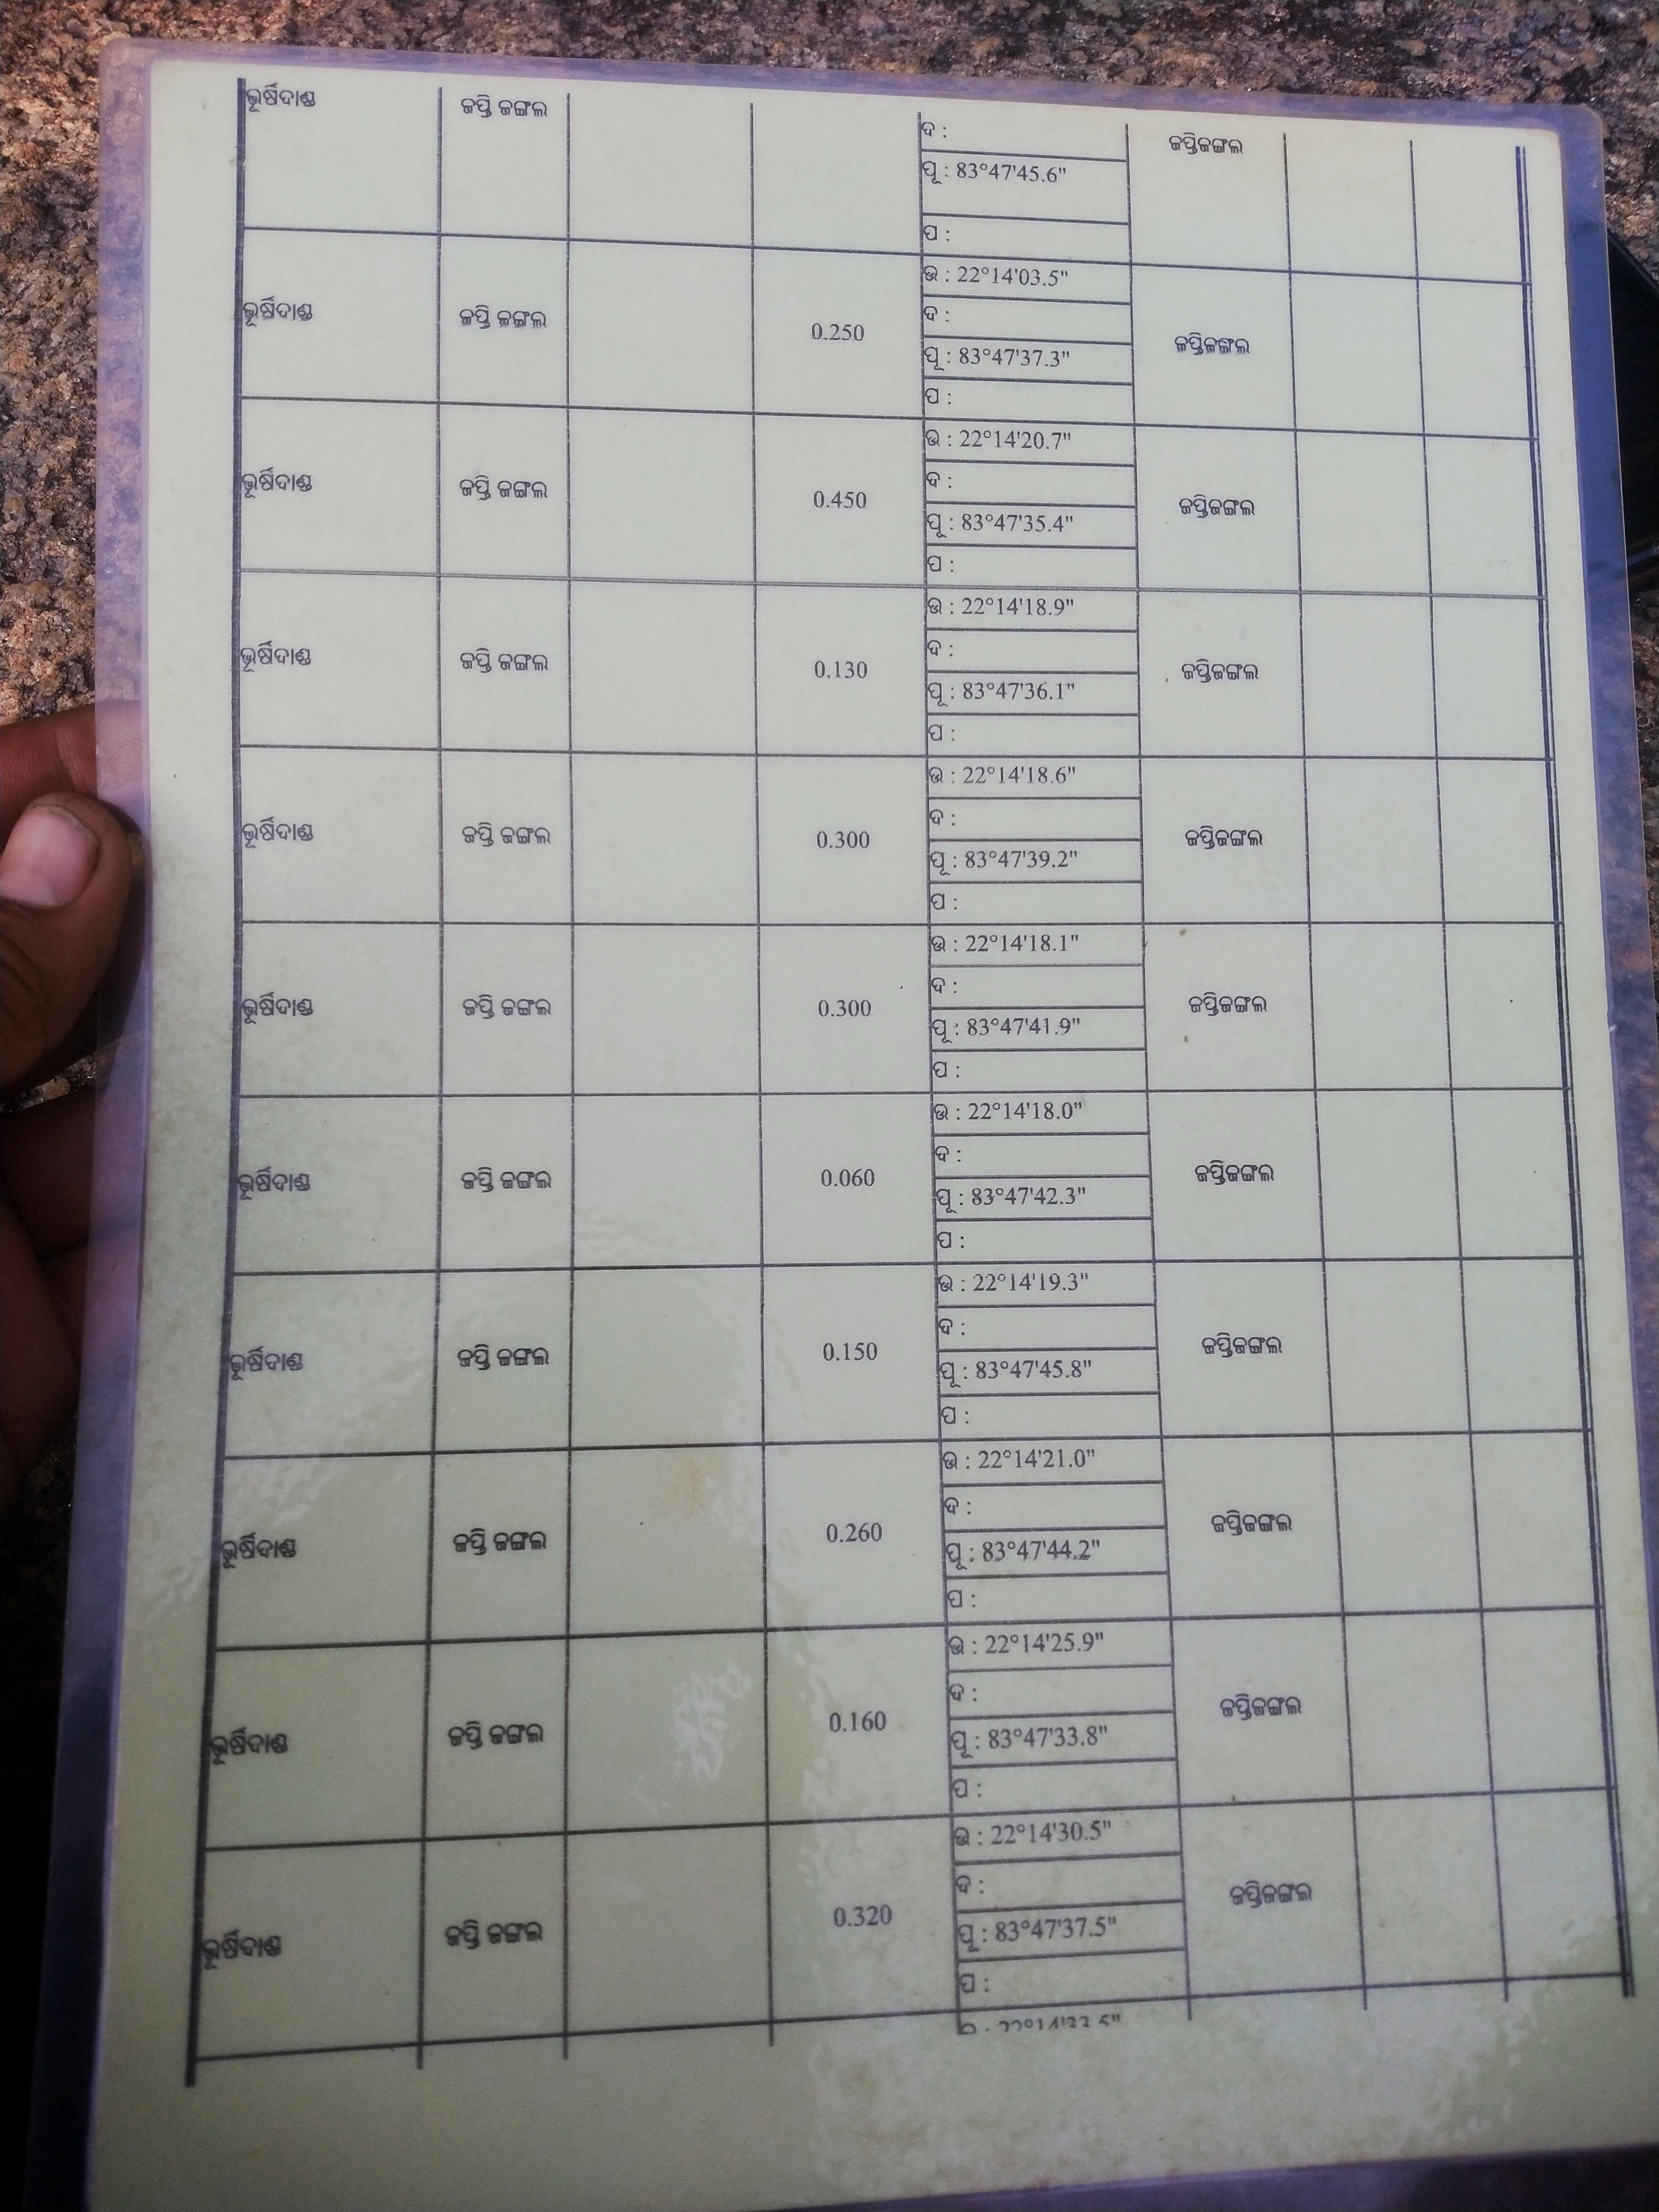 ଭୂର୍ଷିଦାଣ୍ଡ ଜପ୍ତି ଜଙ୍ଗଲ ଦ : ଜପ୍ତିଜଙ୍ଗଲ
ପୂ : 83°47'45.6"
ପ :
ଉ : 22°14'03.5"
ଭୂର୍ଷିଦାଣ୍ଡ ଜପ୍ତି ଜଙ୍ଗଲ 0.250 ଦ : ଜପ୍ତିଜଙ୍ଗଲ
ପୂ : 83°47'37.3"
ପ :
ଉ : 22°14'20.7"
ଭୂର୍ଷିଦାଣ୍ଡ ଜପ୍ତି ଜଙ୍ଗଲ 0.450 ଦ : ଜପ୍ତିଜଙ୍ଗଲ
ପୂ : 83°47'35.4"
ପ :
ଉ : 22°14'18.9"
ଭୂର୍ଷିଦାଣ୍ଡ ଜପ୍ତି ଜଙ୍ଗଲ 0.130 ଦ : ଜପ୍ତିଜଙ୍ଗଲ
ପୂ : 83°47'36.1"
ପ :
ଉ : 22°14'18.6"
ଭୂର୍ଷିଦାଣ୍ଡ ଜପ୍ତି ଜଙ୍ଗଲ 0.300 ଦ : ଜପ୍ତିଜଙ୍ଗଲ
ପୂ : 83°47'39.2"
ପ :
ଉ : 22°14'18.1"
ଭୂର୍ଷିଦାଣ୍ଡ ଜପ୍ତି ଜଙ୍ଗଲ 0.300 ଦ : ଜପ୍ତିଜଙ୍ଗଲ
ପୂ : 83°47'41.9"
ପ :
ଉ : 22°14'18.0"
ଭୂର୍ଷିଦାଣ୍ଡ ଜପ୍ତି ଜଙ୍ଗଲ 0.060 ଦ : ଜପ୍ତିଜଙ୍ଗଲ
ପୂ : 83°47'42.3"
ପ :
ଉ : 22°14'19.3"
ଭୂର୍ଷିଦାଣ୍ଡ ଜପ୍ତି ଜଙ୍ଗଲ 0.150 ଦ : ଜପ୍ତିଜଙ୍ଗଲ
ପୂ : 83°47'45.8"
ପ :
ଉ : 22°14'21.0"
ଭୂର୍ଷିଦାଣ୍ଡ ଜପ୍ତି ଜଙ୍ଗଲ 0.260 ଦ : ଜପ୍ତିଜଙ୍ଗଲ
ପୂ : 83°47'44.2"
ପ :
ଉ : 22°14'25.9"
ଭୂର୍ଷିଦାଣ୍ଡ ଜପ୍ତି ଜଙ୍ଗଲ 0.160 ଦ : ଜପ୍ତିଜଙ୍ଗଲ
ପୂ : 83°47'33.8"
ପ :
ଉ : 22°14'30.5"
ଭୂର୍ଷିଦାଣ୍ଡ ଜପ୍ତି ଜଙ୍ଗଲ 0.320 ଦ : ଜପ୍ତିଜଙ୍ଗଲ
ପୂ : 83°47'37.5"
ପ :